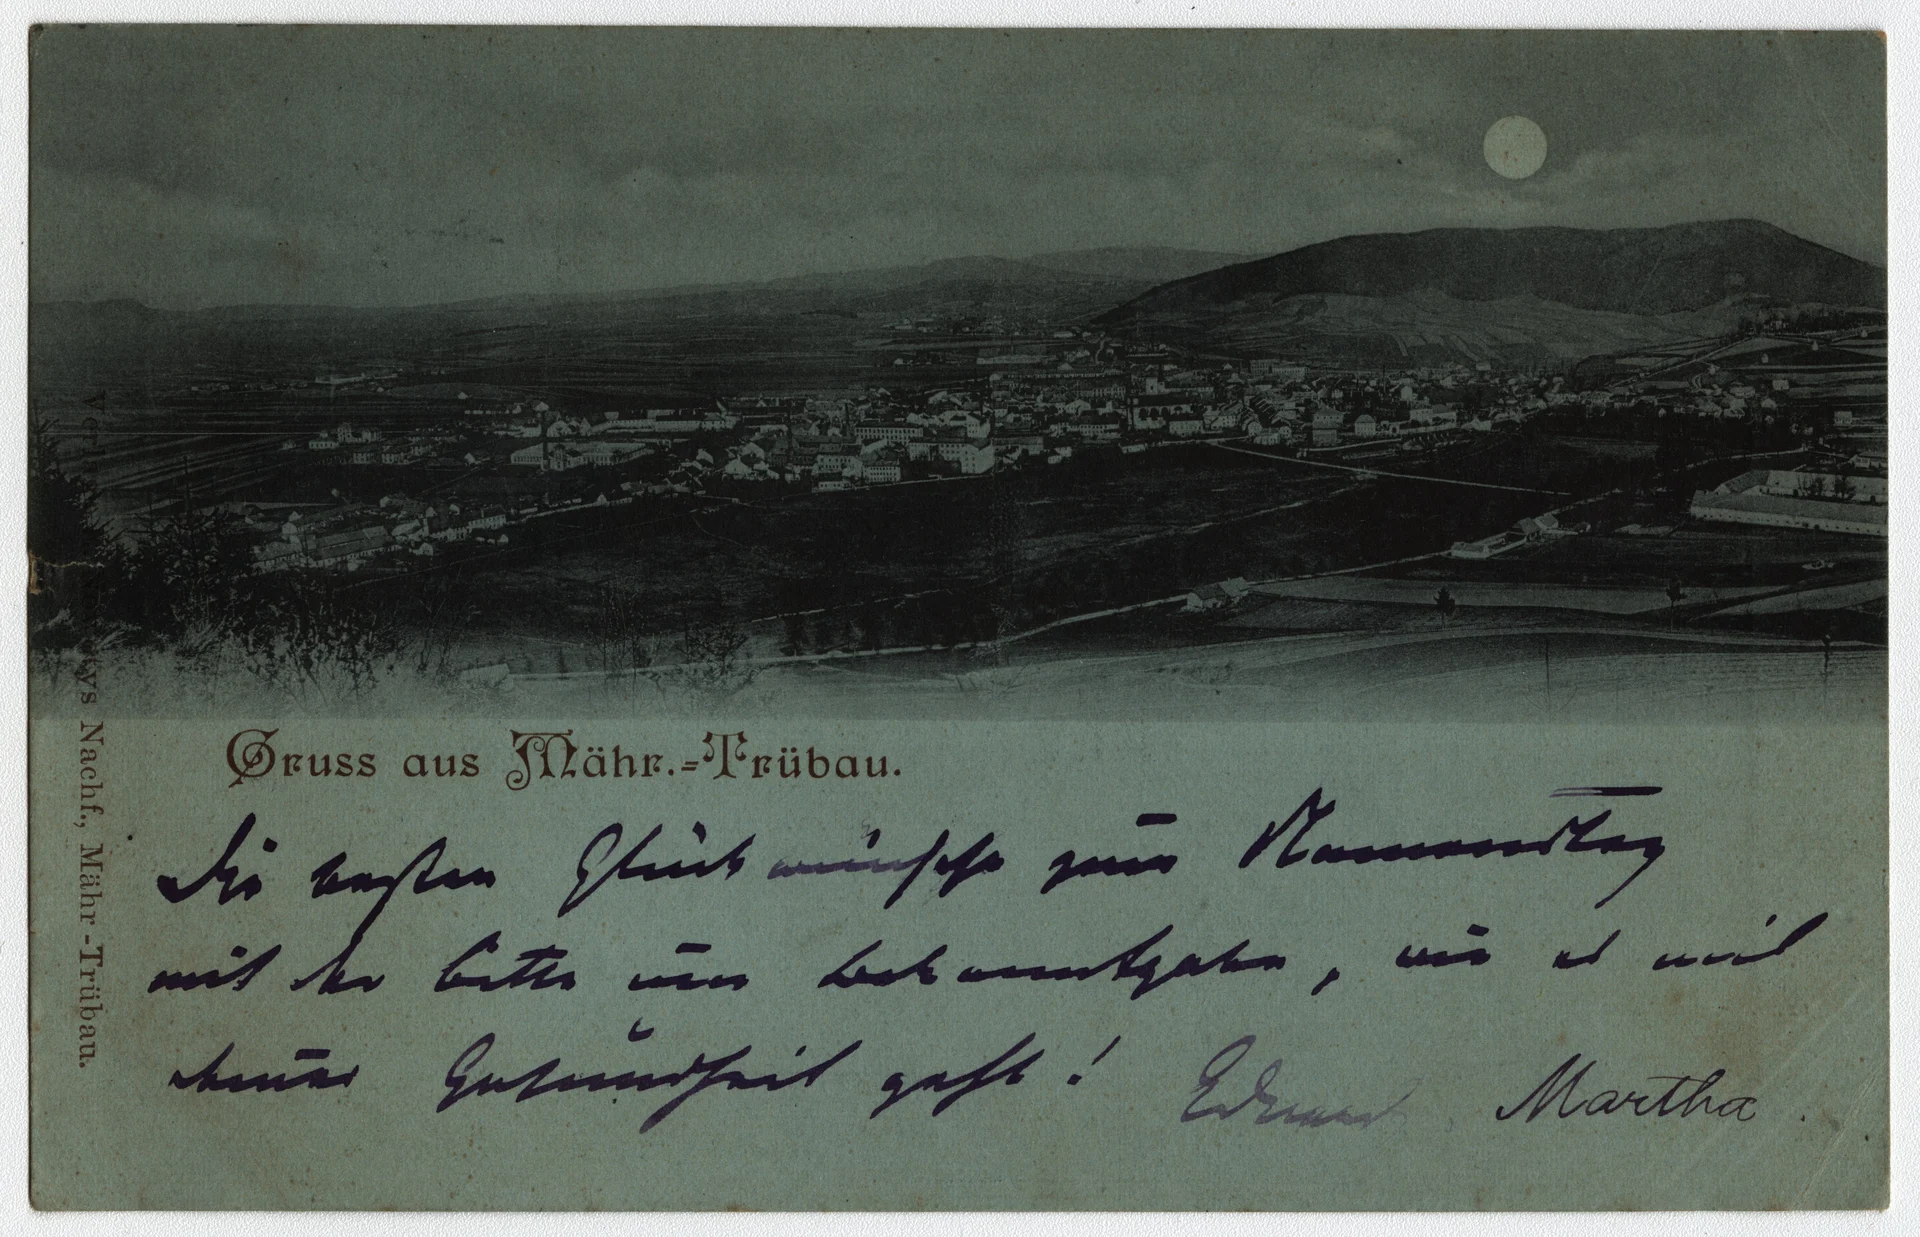 Gruss aus Mähr.-Trübau.
Die besten Glückwünsche zum Namenstag
mit der Bitte um Bekanntgabe, wie es mit
deiner Gesundheit geht!
Martha
Nachf., Mähr.-Trübau.